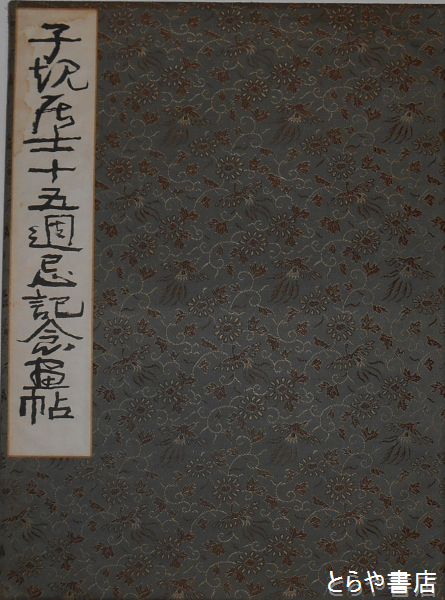 子規居士十五週忌記念畫帖
とらや書店